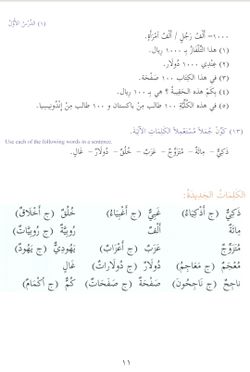 (١) الدَّرْسُ الأَوَّلُ
١٠٠٠= أَلْفُ رَجُلٍ / أَلْفُ امْرَأَةٍ.
(١) هذا التِّلْفَازُ بِـ ١٠٠٠ رِيال.
(٢) عِنْدِي ١٠٠٠ دُولَار.
(٣) في هذا الكتاب ١٠٠ صَفْحَة.
(٤) بِكَمْ هذِهِ الحَقِيبَةُ ؟ هي بِـ ١٠٠ رِيال.
(٥) في هذه الكُلِّيَّةِ ١٠٠ طالب مِنْ باكستان و ١٠٠ طالب مِنْ إنْدُونِيسِيا.
(١٣) كَوِّنْ جُمَلاً مُسْتَعْمِلاً الكَلِمَاتِ الآتِيَةَ.
Use each of the following words in a sentence.
ذَكِيٌّ – مِائَةٌ – مُتَزَوِّجٌ – عَرَبٌ – خُلُقٌ – دُولَارٌ – غَالٍ.
الكَلِمَاتُ الجَدِيدَةُ:
ذَكِيٌّ (ج أَذْكِيَاءُ) غَنِيٌّ (ج أَغْنِيَاءُ) خُلُقٌ (ج أَخْلَاقٌ)
مِائَةٌ أَلْفٌ رُوبِيَّةٌ (ج رُوبِيَّاتٌ)
مُتَزَوِّجٌ عَرَبٌ (ج أَعْرَابٌ) يَهُودِيٌّ (ج يَهُودٌ)
مُعْجَمٌ (ج مَعَاجِمُ) دُولَارٌ (ج دُولَارَاتٌ) غَالٍ
نَاجِحٌ (ج نَاجِحُونَ) صَفْحَةٌ (ج صَفَحَاتٌ) كُمٌّ (ج أَكْمَامٌ)
١١